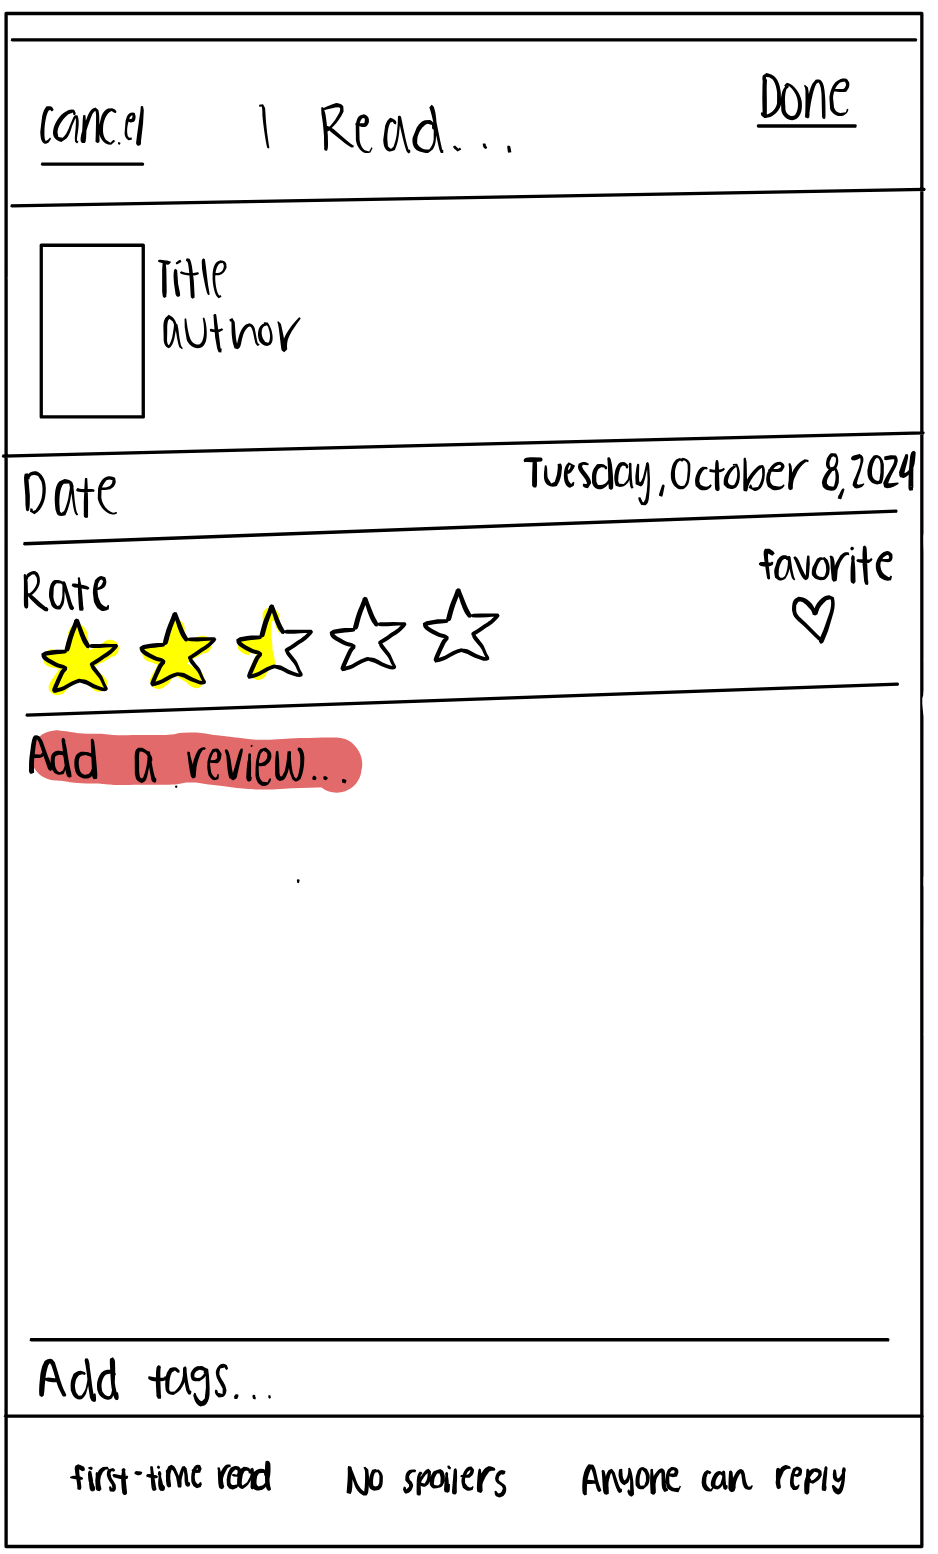 cancel I Read... Done
Title
author
Date Tuesday, October 8, 2024
Rate favorite
Add a review...
Add tags...
first-time read No spoilers Anyone can reply